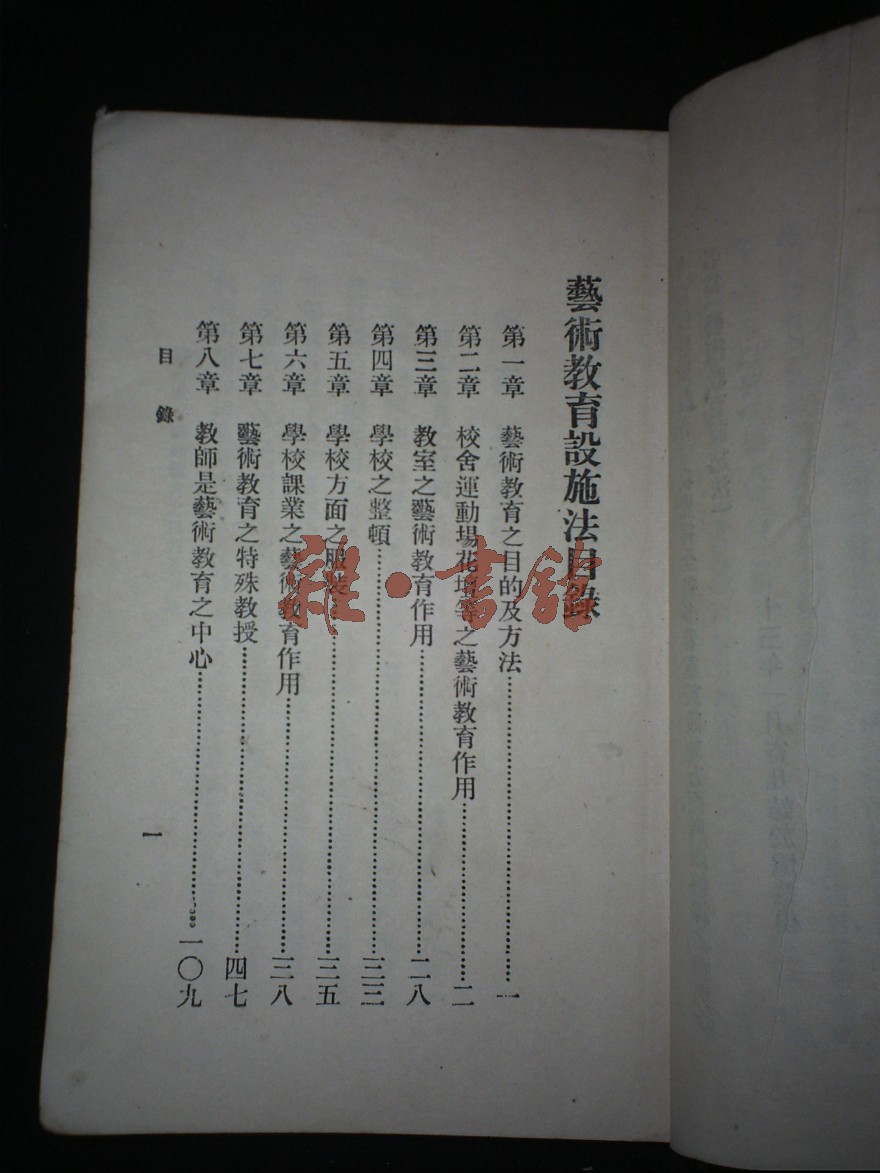 藝術教育設施法目錄
第一章 藝術教育之目的及方法……一
第二章 校舍運動場花壇等之藝術教育作用……二
第三章 教室之藝術教育作用……二八
第四章 學校之整頓……三三
第五章 學校方面之服裝……三五
第六章 學校課業之藝術教育作用……三八
第七章 藝術教育之特殊教授……四七
第八章 教師是藝術教育之中心……一〇九
目錄
一
雜·書館